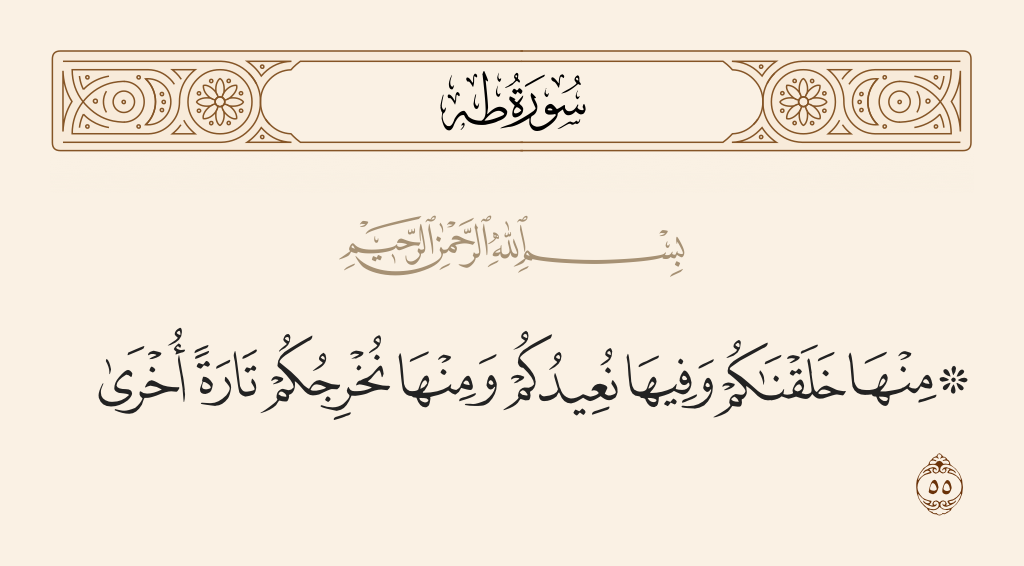 سُورَةُ طه
بِسْمِ ٱللَّهِ ٱلرَّحْمَٰنِ ٱلرَّحِيمِ
۞ مِنْهَا خَلَقْنَٰكُمْ وَفِيهَا نُعِيدُكُمْ وَمِنْهَا نُخْرِجُكُمْ تَارَةً أُخْرَىٰ
٥٥